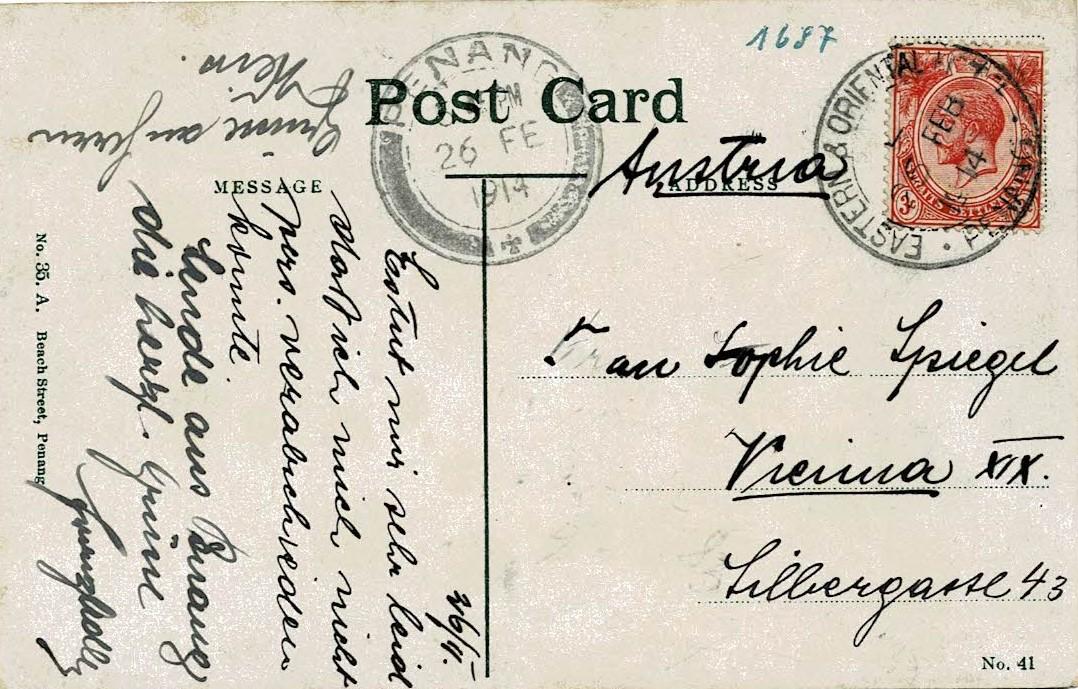 1687
Post Card
PENANG
26 FE
1914
EASTERN & ORIENTAL HOTEL
PENANG
FEB
14
MESSAGE
ADDRESS
Austria
Frau Sophie Spiegel
Vienna XIX.
Silbergasse 43
No. 41
26/II.
Es tut mir sehr leid
dass ich mich nicht
pers. verabschieden
konnte.
Sende aus Penang
die herzl. Grüsse
Gruss an Herrn
No. 35. A. Beach Street, Penang